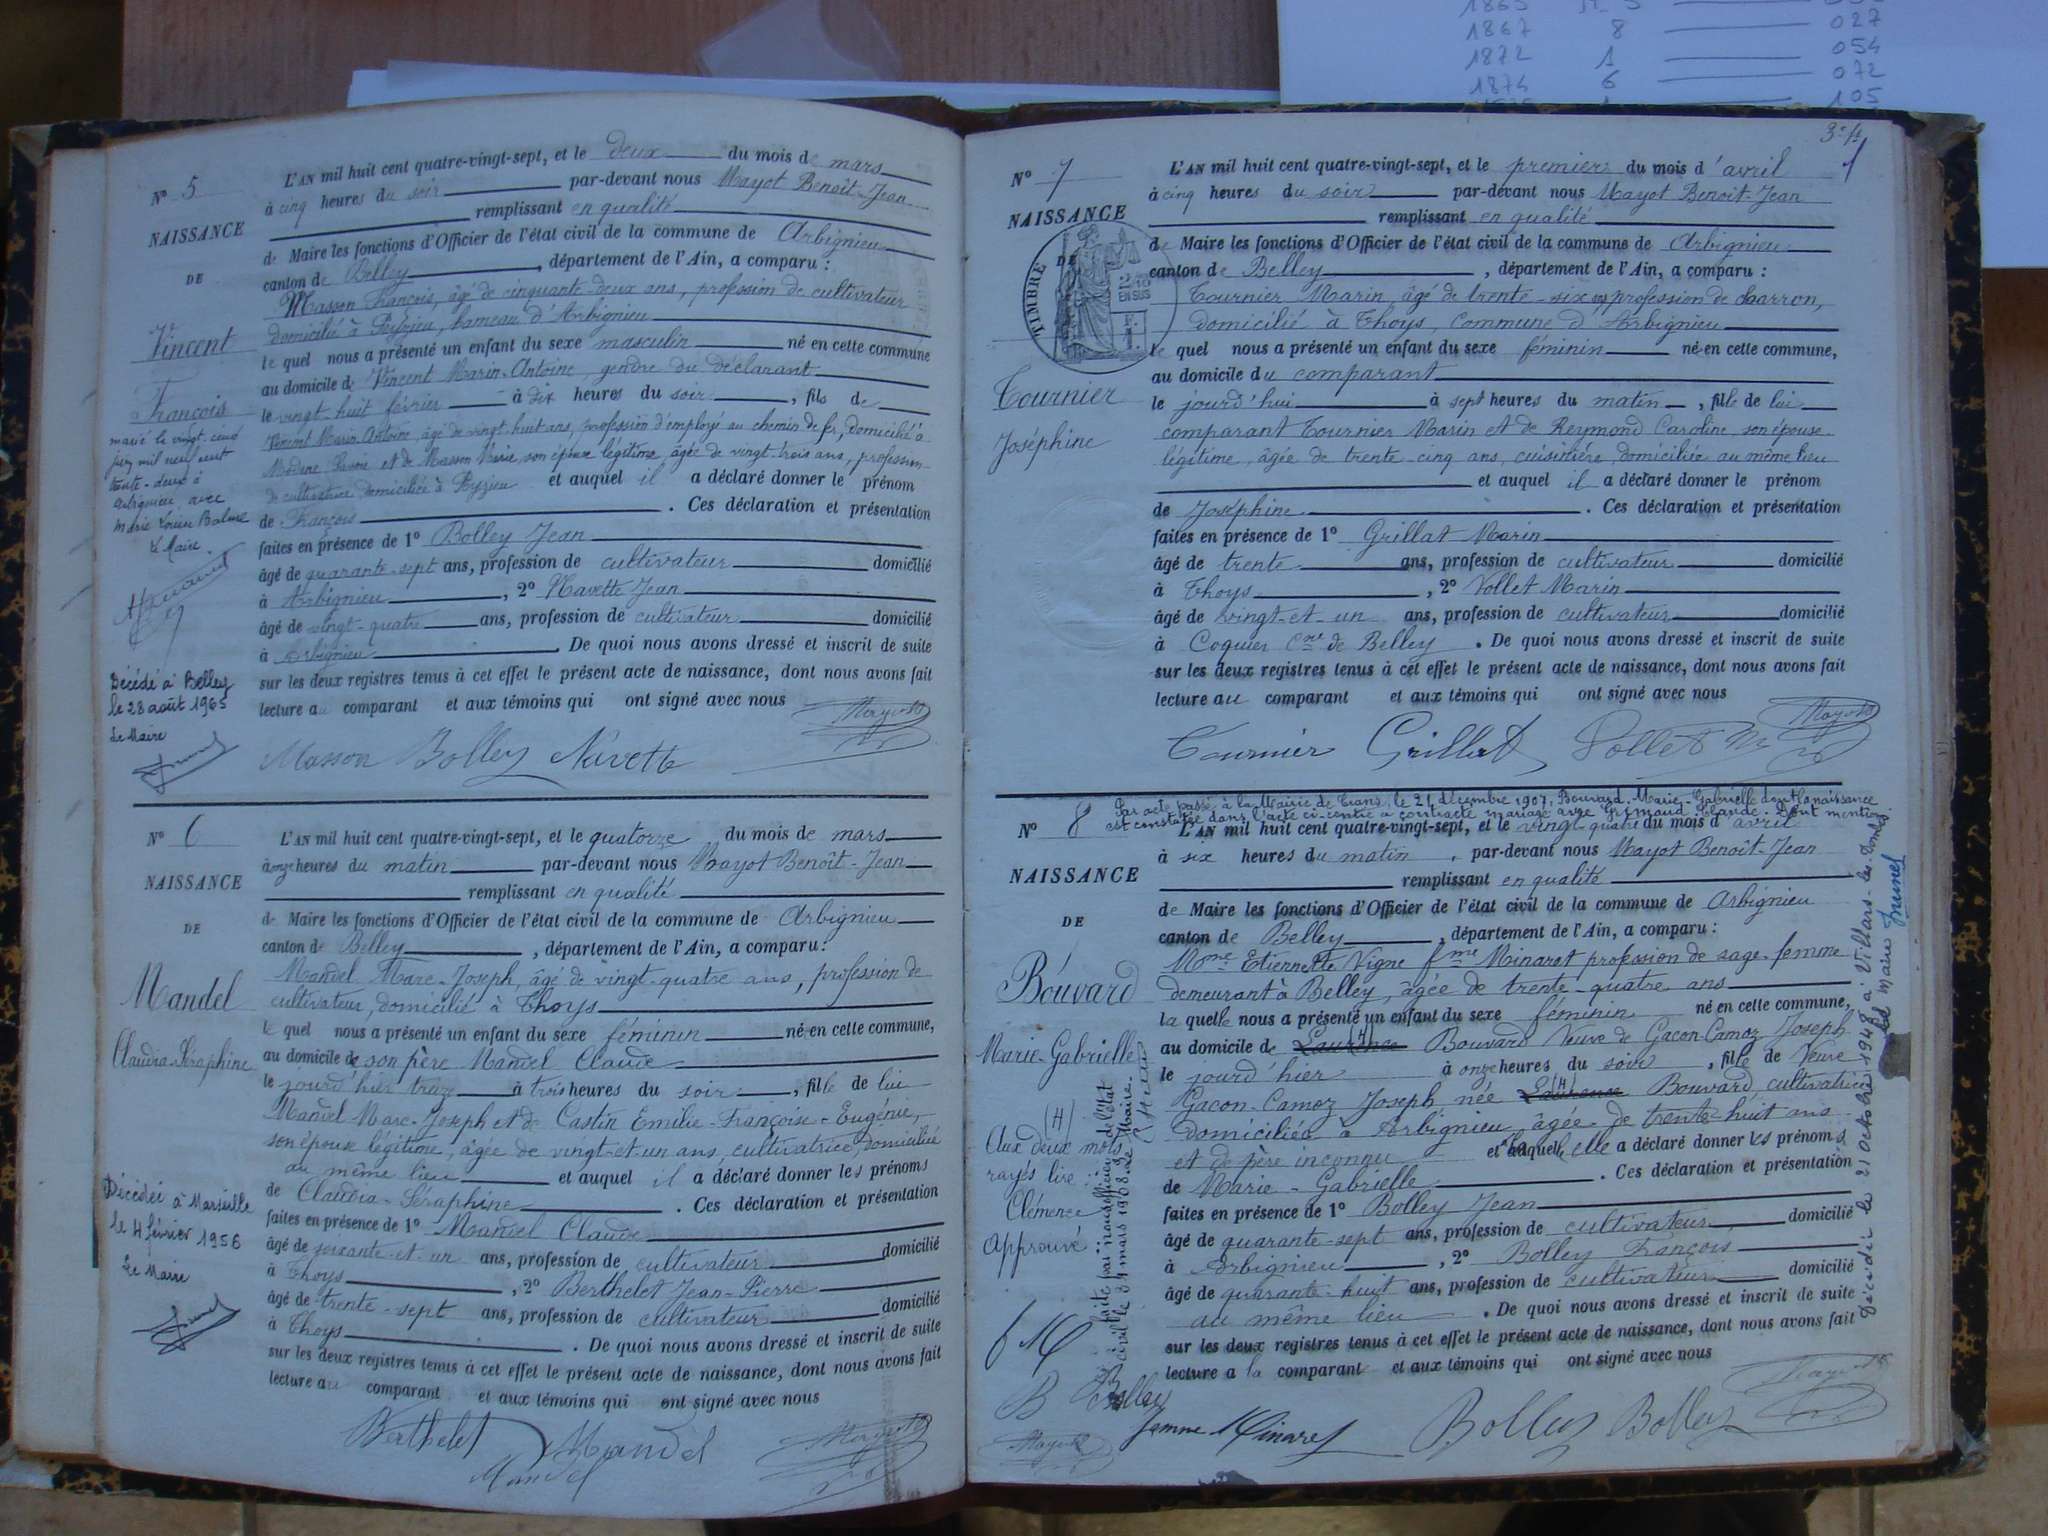 1865
1867 8 027
1872 1 054
1874 6 072
105
N° 5
NAISSANCE
DE
Vincent
François
marié le vingt-cinq
juin mil neuf cent
trente-deux à
Arbignieu avec
Marie Balme
Le Maire
Décédé à Belley
le 28 août 1965
Le Maire
L'AN mil huit cent quatre-vingt-sept, et le deux du mois de mars
à cinq heures du soir par-devant nous Mayot Benoît-Jean
remplissant en qualité
de Maire les fonctions d'Officier de l'état civil de la commune de Arbignieu
canton de Belley, département de l'Ain, a comparu :
Masson François, âgé de cinquante-deux ans, profession de cultivateur
domicilié à Peyzieu, hameau d'Arbignieu
le quel nous a présenté un enfant du sexe masculin né en cette commune
au domicile de Vincent Marin-Antoine, gendre du déclarant
le vingt-huit février à dix heures du soir, fils de
Vincent Marin-Antoine, âgé de vingt-huit ans, profession d'employé au chemin de fer, domicilié à
Modane Savoie et de Masson Marie, son épouse légitime, âgée de vingt-trois ans, profession
de cultivatrice domiciliée à Peyzieu et auquel il a déclaré donner le prénom
de François. Ces déclaration et présentation
faites en présence de 1° Bolley Jean
âgé de quarante-sept ans, profession de cultivateur domicilié
à Arbignieu, 2° Navette Jean
âgé de vingt-quatre ans, profession de cultivateur domicilié
à Arbignieu. De quoi nous avons dressé et inscrit de suite
sur les deux registres tenus à cet effet le présent acte de naissance, dont nous avons fait
lecture au comparant et aux témoins qui ont signé avec nous
Masson Bolley Navette Mayot
N° 6
NAISSANCE
DE
Mandel
Claudia-Séraphine
Décédée à Marseille
le 4 février 1956
Le Maire
L'AN mil huit cent quatre-vingt-sept, et le quatorze du mois de mars
à onze heures du matin par-devant nous Mayot Benoît-Jean
remplissant en qualité
de Maire les fonctions d'Officier de l'état civil de la commune de Arbignieu
canton de Belley, département de l'Ain, a comparu :
Mandel Marc-Joseph, âgé de vingt-quatre ans, profession de
cultivateur, domicilié à Thoys
le quel nous a présenté un enfant du sexe féminin né en cette commune,
au domicile de son père Mandel Claude
le jourd'hier treize à trois heures du soir, fille de lui
Mandel Marc-Joseph et de Castin Emilie-Françoise-Eugénie,
son épouse légitime, âgée de vingt-et-un ans, cultivatrice, domiciliée
au même lieu et auquel il a déclaré donner les prénoms
de Claudia-Séraphine. Ces déclaration et présentation
faites en présence de 1° Mandel Claude
âgé de soixante-et-un ans, profession de cultivateur domicilié
à Thoys, 2° Berthelet Jean-Pierre
âgé de trente-sept ans, profession de cultivateur domicilié
à Thoys. De quoi nous avons dressé et inscrit de suite
sur les deux registres tenus à cet effet le présent acte de naissance, dont nous avons fait
lecture au comparant et aux témoins qui ont signé avec nous
Berthelet Mandel Mayot
Mandel
N° 7
NAISSANCE
DE
TIMBRE
EN SUS
Tournier
Joséphine
L'AN mil huit cent quatre-vingt-sept, et le premier du mois d'avril
à cinq heures du soir par-devant nous Mayot Benoît-Jean
remplissant en qualité
de Maire les fonctions d'Officier de l'état civil de la commune de Arbignieu
canton de Belley, département de l'Ain, a comparu :
Tournier Marin, âgé de trente-six ans profession de charron,
domicilié à Thoys, commune d'Arbignieu
le quel nous a présenté un enfant du sexe féminin né en cette commune,
au domicile du comparant
le jourd'hui à sept heures du matin, fille de lui
comparant Tournier Marin et de Reymond Caroline son épouse
légitime, âgée de trente-cinq ans, cuisinière, domiciliée au même lieu
et auquel il a déclaré donner le prénom
de Joséphine. Ces déclaration et présentation
faites en présence de 1° Grillat Marin
âgé de trente ans, profession de cultivateur domicilié
à Thoys, 2° Vollet Marin
âgé de vingt-et-un ans, profession de cultivateur domicilié
à Coquier Cne de Belley. De quoi nous avons dressé et inscrit de suite
sur les deux registres tenus à cet effet le présent acte de naissance, dont nous avons fait
lecture au comparant et aux témoins qui ont signé avec nous
Tournier Grillat Vollet Mayot
Par acte passé à la Mairie de Crans, le 21 décembre 1907, Bouvard Marie-Gabrielle dont la naissance
est constatée dans l'acte ci-contre a contracté mariage avec Grimaud Claude. Dont mention
faite par nous officier de l'état
civil le 31 mars 1908. Le Maire.
N° 8
NAISSANCE
DE
Bouvard
Marie-Gabrielle
(4)
Aux deux mots
rayés lire :
Clémence
Approuvé
f M
B Bolley
Mayot
L'AN mil huit cent quatre-vingt-sept, et le vingt-quatre du mois d'avril
à six heures du matin, par-devant nous Mayot Benoît-Jean
remplissant en qualité
de Maire les fonctions d'Officier de l'état civil de la commune de Arbignieu
canton de Belley, département de l'Ain, a comparu :
Mme Etiennette Vigne fme Minaret profession de sage-femme
demeurant à Belley, âgée de trente-quatre ans
la quelle nous a présenté un enfant du sexe féminin né en cette commune,
au domicile de Laurence (4) Bouvard Veuve de Gacon-Camoz Joseph
le jourd'hier à onze heures du soir, fille de Veuve
Gacon-Camoz Joseph née Laurence (4) Bouvard, cultivatrice
domiciliée à Arbignieu, âgée de trente-huit ans
et de père inconnu et à laquelle elle a déclaré donner les prénoms
de Marie-Gabrielle. Ces déclaration et présentation
faites en présence de 1° Bolley Jean
âgé de quarante-sept ans, profession de cultivateur, domicilié
à Arbignieu, 2° Bolley François
âgé de quarante-huit ans, profession de cultivateur domicilié
au même lieu. De quoi nous avons dressé et inscrit de suite
sur les deux registres tenus à cet effet le présent acte de naissance, dont nous avons fait
lecture a la comparante et aux témoins qui ont signé avec nous
femme Minaret Bolley Bolley Mayot
Décédée le 21 octobre 1948 à Villars-les-Dombes
Le Maire